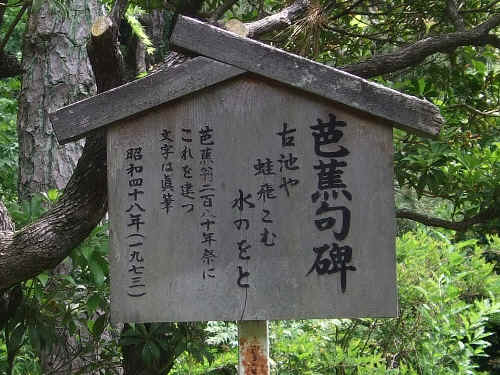 芭蕉句碑
古池や
蛙飛こむ
水のをと
芭蕉翁二百八十年祭に
これを建つ
文字は真筆
昭和四十八年(一九七三)